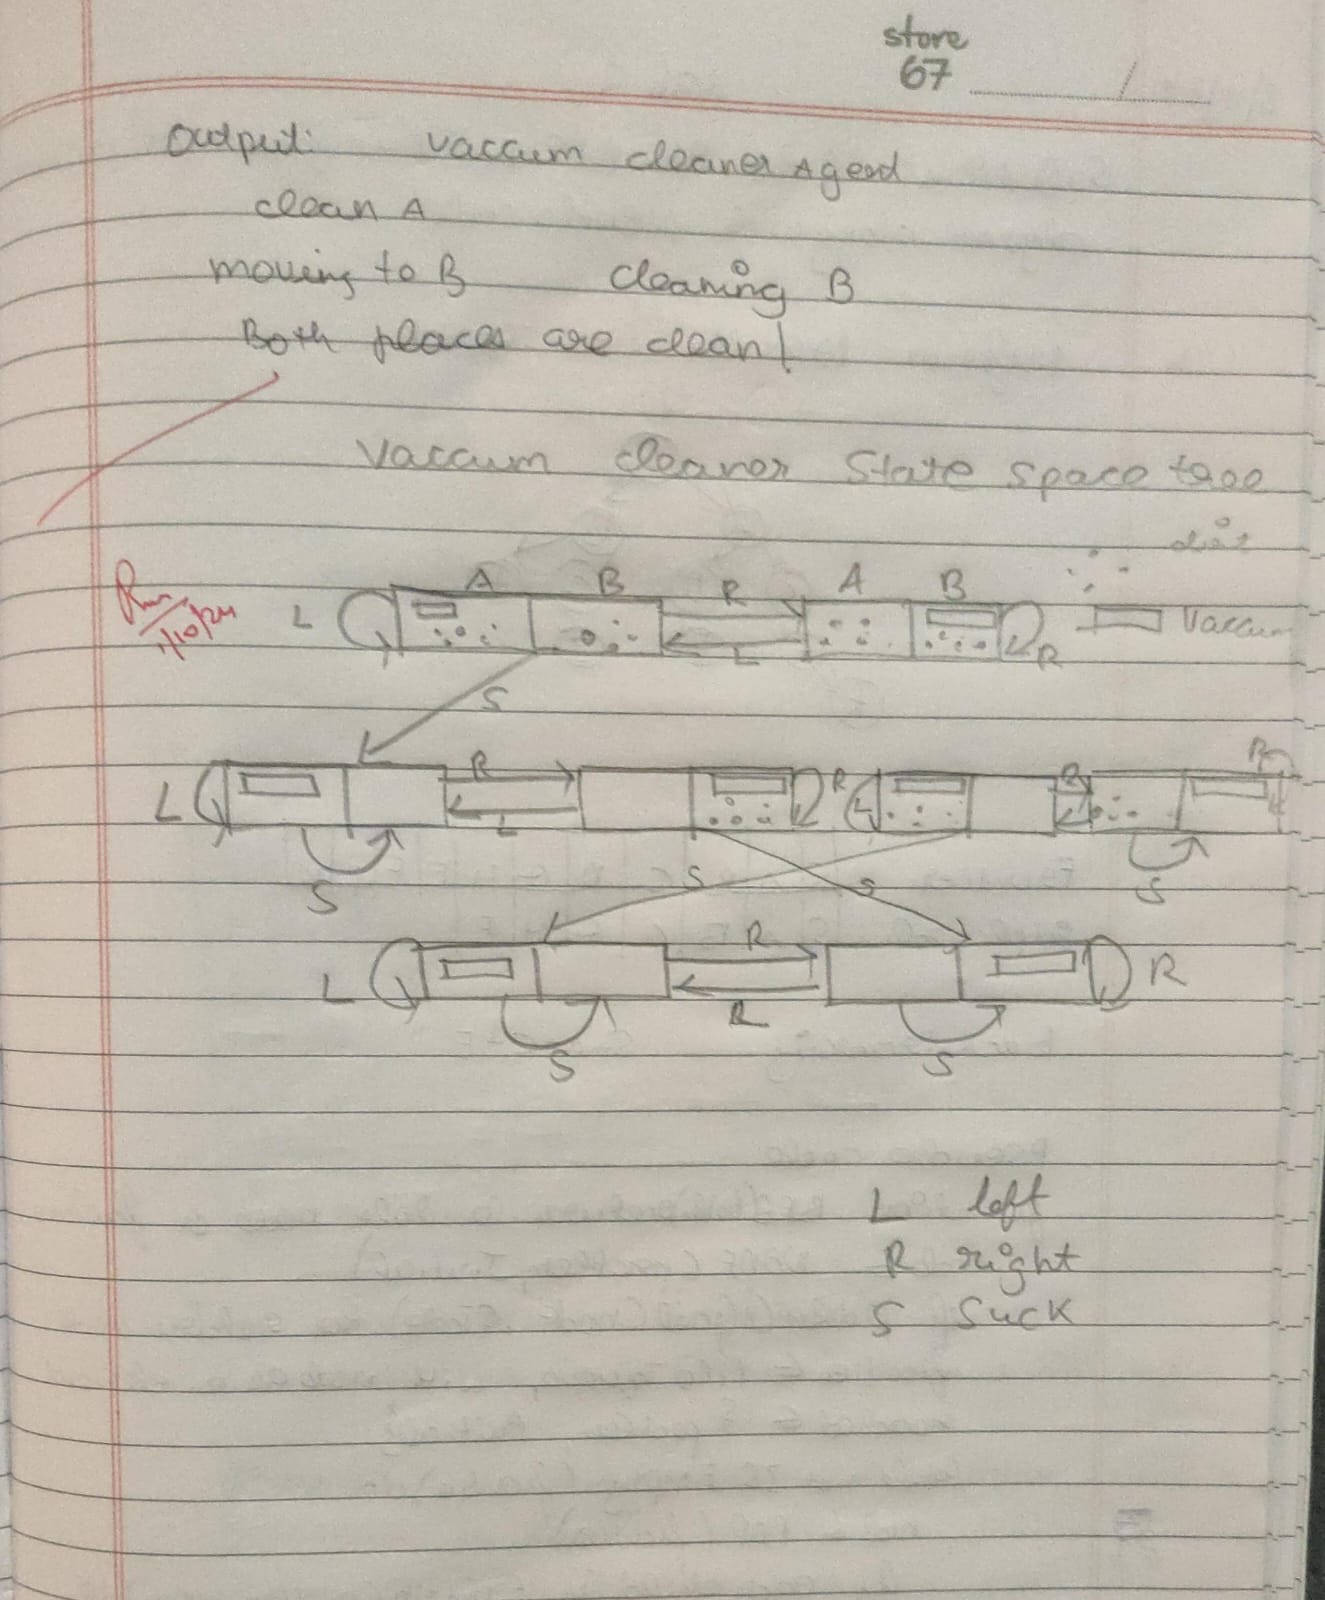 store
67
Output: Vaccum cleaner Agent
clean A
moving to B cleaning B
Both places are clean!
Vaccum cleaner State space tree
dirt
A B R A B
L Vaccum
L R
S
R R
L L R L R
S S S S
R
L R
R
S S
L left
R right
S Suck